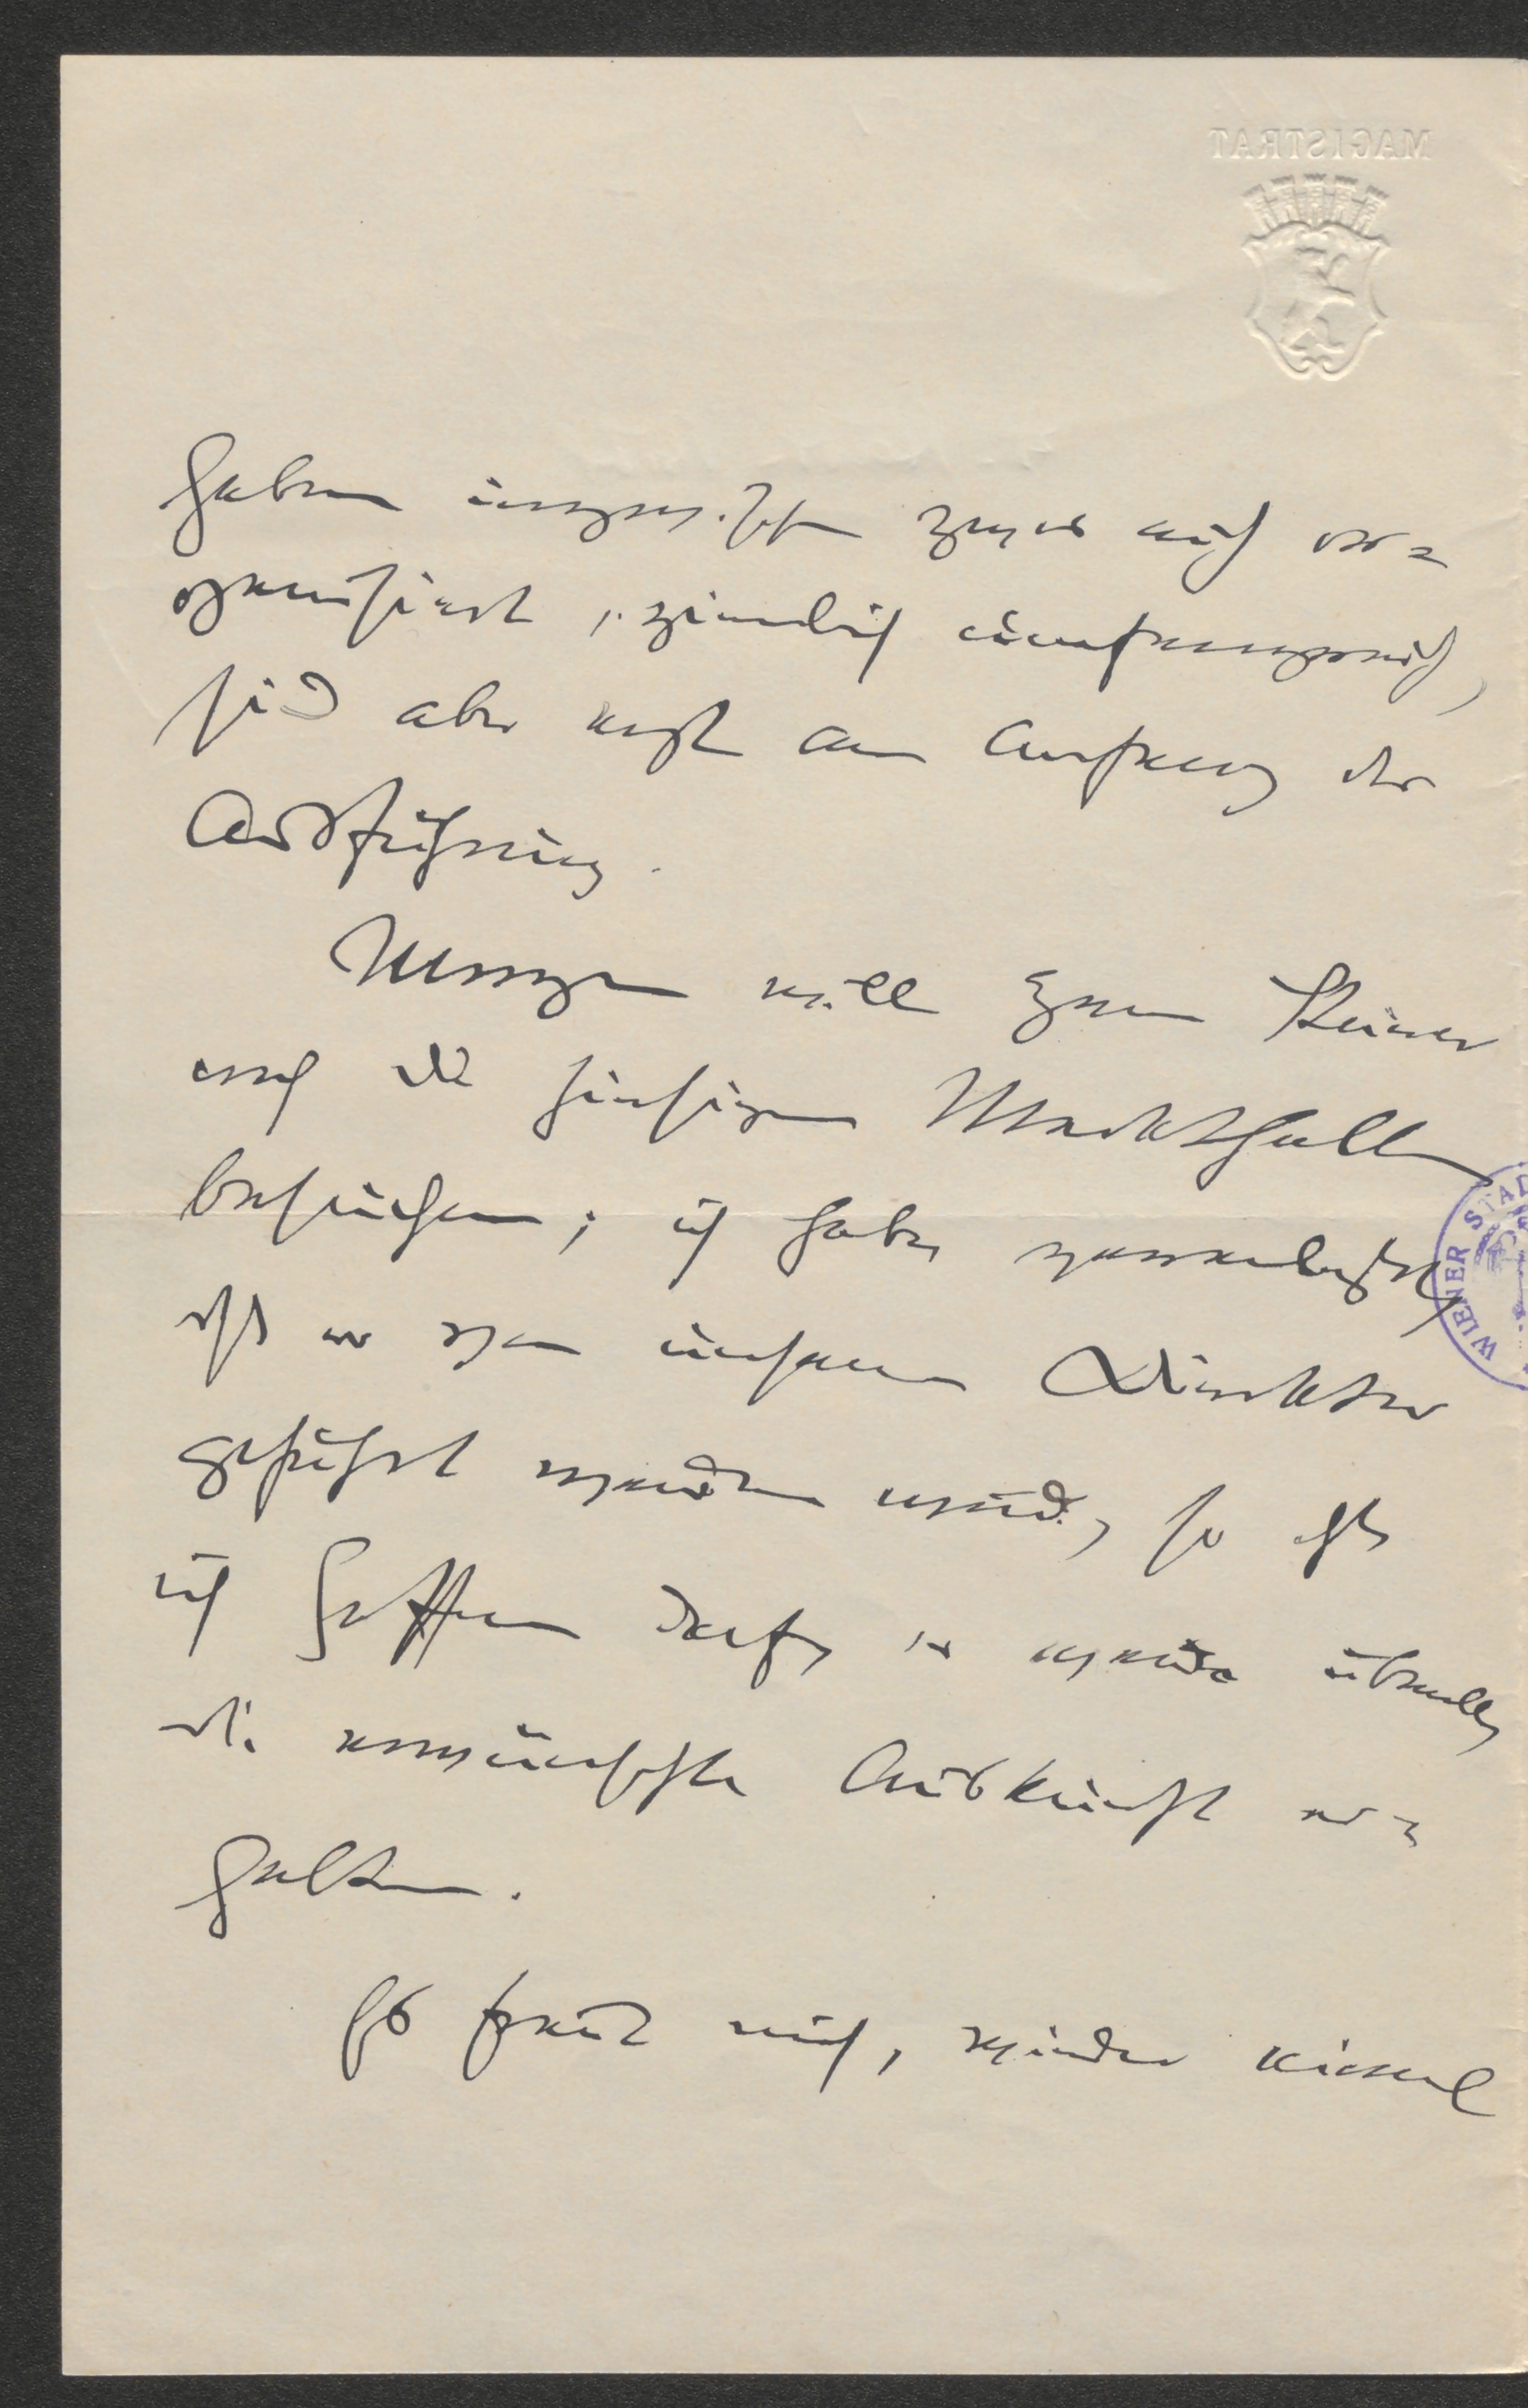 MAGISTRAT
haben inzwischen zwar auch or=
ganisirt, ziemlich umfangreich,
sind aber erst am Anfang der
Ausführung.
Morgen will Herr Steiner
noch die hiesigen Markthallen
besuchen; ich habe veranlaßt,
daß er von unserem Direktor
geführt werden wird, so daß
ich hoffen darf, er werde überall
die erwünschte Auskunft er=
halten.
Es freut mich, wieder einmal
WIENER STAD